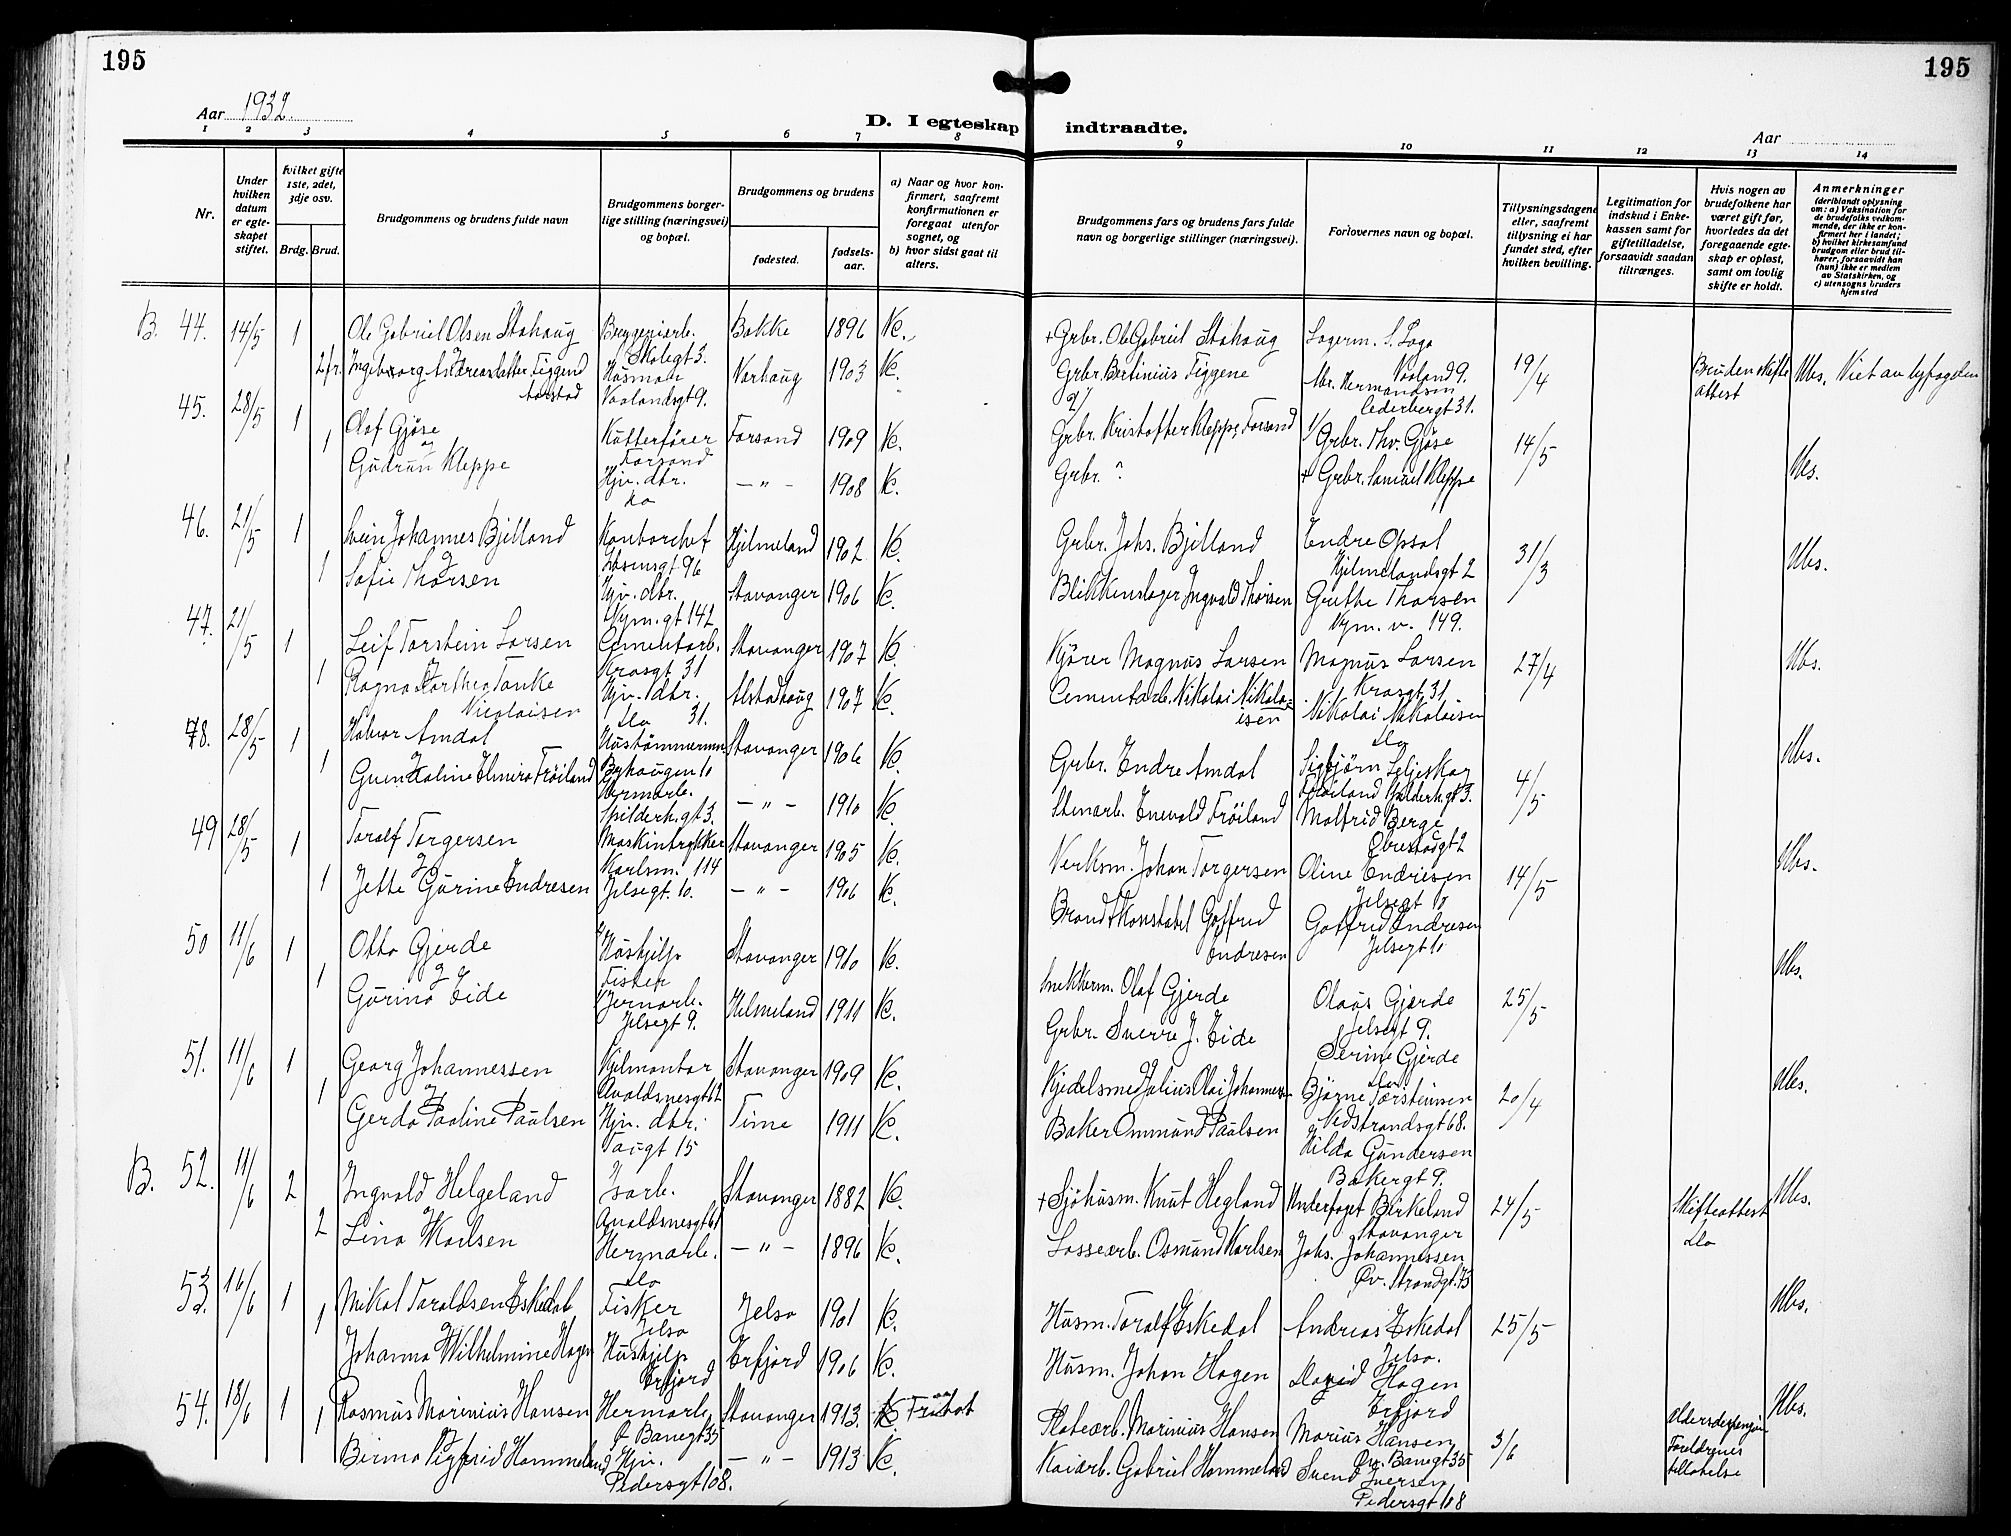 195
195
Aar 1932.
D. I egteskap indtraadte.
Aar
1 2 3 4 5 6 7 8 9 10 11 12 13 14
Nr.
Under hvilken datum er egteskapet stiftet.
hvilket gifte 1ste, 2det, 3dje osv.
Brdg. Brud.
Brudgommens og brudens fulde navn
Brudgommens borgerlige stilling (næringsvei) og bopæl.
Brudgommens og brudens
fødested.
fødselsaar.
a) Naar og hvor konfirmert, saafremt konfirmutionen er foregaat utenfor sognet, og
b) hvor sidst gaat til alters.
Brudgommens fars og brudens fars fulde navn og borgerlige stillinger (næringsvei).
Forlovernes navn og bopæl.
Tillysningsdagene eller, saafremt tillysning ei har fundet sted, efter hvilken bevilling.
Legitimation for indskud i Enkekassen samt for giftetilladelse, forsaavidt saadan tiltrænges.
Hvis nogen av brudefolkene har været gift før, hvorledes da det foregaaende egteskap er opløst, samt om lovlig skifte er holdt.
Anmerkninger (deriblandt oplysning om: a) Vaksination for de brudefolks vedkommende, der ikke er konfirmert her i landet; b) hvilket kirkesamfund brudgom eller brud tilhører, forsaavidt han (hun) ikke er medlem av Statskirken, og c) utensogns bruders hjemsted
B. 44. 14/5 1 Ole Gabriel Olsen Stohaug Bryggeriarb. Skolegt 3. Bakke 1896 K. + Grbr. Ole Gabriel Stohaug
2 fr. Ingeborg Andreasdatter Figgend Husmor Vaalandsgt 9. Varhaug 1903 K. Grbr. Bertinius Figgene Vaaland 9. Cederbergt 31. 19/4 Bruden skifteattest Ubs. Viet av byfogden
45. 28/5 1 Olaf Gjøse Kutterfører Forsand Forsand 1909 K. Grbr. Kristoffer Kleppe, Forsand 1/ Grbr. Thv. Gjøse 14/5
1 og Gudrun Kleppe Hjv. dtr. do — " — 1908 K. Grbr. ? + Grbr. Samuel Kleppe Ubs.
46. 21/5 1 Svein Johannes Bjelland Kontorchef 96 Hjelmeland 1902 K. Grbr. Johs. Bjelland Endre Opsal Hjelmelandsgt 2 31/3 Ubs.
1 og Sofie Thorsen Hjv. dtr. Nym. gt 142 Stavanger 1906 K. Blikkenslager Ingvald Thorsen Grethe Thorsen Nym. v. 149.
47. 21/5 1 Leif Torstein Larsen Cementarb. Krosgt 31 Stavanger 1907 K. Kjører Magnus Larsen Magnus Larsen Krosgt. 31 27/4 Ubs.
1 og Ragna Dorthea Tanke Nicolaisen Hjv. dtr. do 31. Alstahaug 1907 K. Cementarb. Nikolai Nikolaisen Nikolai Nikolaisen do
48. 28/5 1 Halvor Amdal Hustømmermn Byhaugen 10 Stavanger 1906 K. Grbr. Endre Amdal Sigbjørn Seljeskog 4/5 Ubs.
1 og Elmira Frøiland Hermarb. Spilderh. gt 3. — " — 1910 K. Stenarb. Enevald Frøiland Malfrid Berge
49 28/5 1 Toralf Torgersen Maskintrykker Karlsm. 114 Stavanger 1905 K. Verksm. Johan Torgersen Oline Endresen Jelsegt 10 14/5 Ubs.
1 og Jette Gurine Endresen Jelsegt. 10. — " — 1906 K. Brandkonstabel Gotfred Endresen Gotfred Endresen Jelsegt 10
50 11/6 1 Otto Gjerde Stavanger 1910 K. Snekkerm. Olaf Gjerde Olaus Gjerde Jelsegt 9. 25/5 Ubs.
1 og Gurina Eide Jelsegt 9. Helmeland 1911 K. Grbr. Sverre J. Eide Serine Gjerde do
51. 11/6 1 Georg Johannessen Kjelmontør Avaldsnesgt 62 Stavanger 1909 K. Kjedelsmed Julius Olai Johannessen Bjarne Torsteinsen Vedstrandsgt 68. 20/4 Ubs.
1 og Gerda Pauline Paulsen Hjv. dtr. Taugt 15 Time 1911 K. Baker Ommund Paulsen Hilda Gundersen Bakergt 9.
B. 52. 11/6 2 Ingvald Helgeland Isarb. Avaldsnesgt 61 Stavanger 1882 K. + Sjøhusm. Knut Hegland Underfoget Birkeland Stavanger 24/5 Skifteattest Ubs.
2 og Lina Karlsen Hermarb. do — " — 1896 K. Lossearb. Osmund Karlsen Johs. Johannessen Øv. Strandgt. 73 do
53. 16/6 1 Mikal Taraldsen Eskedal Fisker Jelsa Jelsa 1901 K. Husm. Toralf Eskedal Andreas Eskedal Jelsa. 25/5 Ubs.
1 og Johanna Wilhelmine Hagen Hushjelp Erfjord Erfjord 1906 K. Husm. Johan Hagen David Hagen Erfjord
54. 18/6 1 Rasmus Marinius Hansen Hermarb. Ø Banegt 35 Stavanger 1913. Platearb. Marinius Hansen Marius Hansen Øv. Banegt 35 3/6 Aldersdispensasjon Ubs.
1 og Birma Sigfrid Hammeland Hjv. Pedersgt 108. — " — 1913 K. Kaiarb. Gabriel Hammeland Svend Iversen Pedersgt 108 Foreldrenes tillatelse